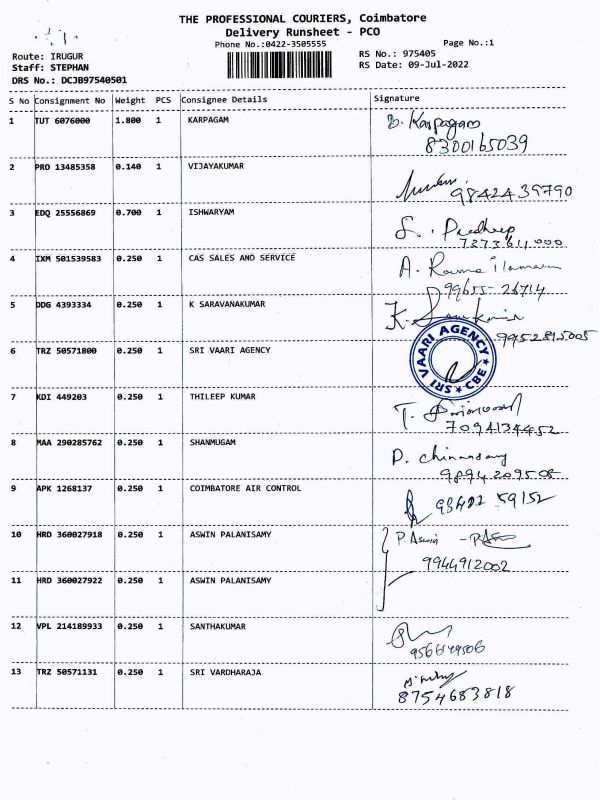 THE PROFESSIONAL COURIERS, Coimbatore
Delivery Runsheet - PCO
Phone No.:0422-3505555 Page No.:1
Route: IRUGUR RS No.: 975405
Staff: STEPHAN RS Date: 09-Jul-2022
DRS No.: DCJB97540501
S No Consignment No Weight PCS Consignee Details Signature
1 TUT 6076000 1.800 1 KARPAGAM B. Karpagam
8300165039
2 PRO 13485358 0.140 1 VIJAYAKUMAR
9842439790
3 EDQ 25556869 0.700 1 ISHWARYAM S. Pradheep
7373611000
4 IXM 501539583 0.250 1 CAS SALES AND SERVICE A.
99655-26714
5 DDG 4393334 0.250 1 K SARAVANAKUMAR K.
9952815005
6 TRZ 50571800 0.250 1 SRI VAARI AGENCY SRI VAARI AGENCY ★ CBE ★
7 KDI 449203 0.250 1 THILEEP KUMAR T.
7094134452
8 MAA 290285762 0.250 1 SHANMUGAM P.
9894209508
9 APK 1268137 0.250 1 COIMBATORE AIR CONTROL 59152
10 HRD 360027918 0.250 1 ASWIN PALANISAMY P. Aswin
9944912002
11 HRD 360027922 0.250 1 ASWIN PALANISAMY
12 VPL 214189933 0.250 1 SANTHAKUMAR
13 TRZ 50571131 0.250 1 SRI VARDHARAJA
8754683818